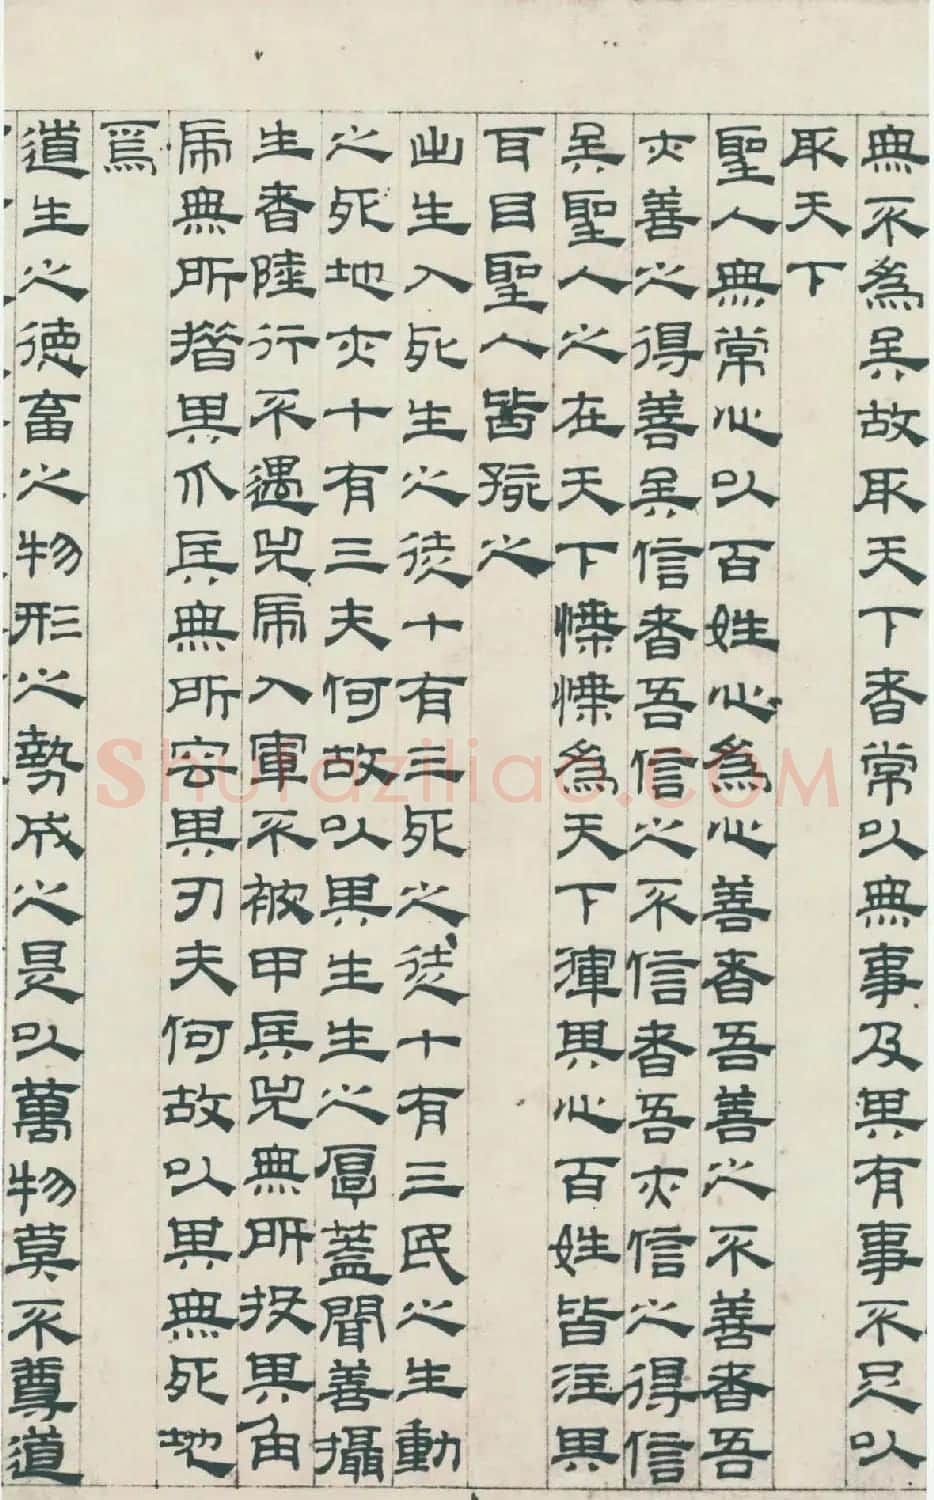 無不為矣故取天下者常以無事及其有事不足以
取天下
聖人無常心以百姓心為心善者吾善之不善者吾
亦善之得善矣信者吾信之不信者吾亦信之得信
矣聖人之在天下惵惵為天下渾其心百姓皆注其
耳目聖人皆孩之
出生入死生之徒十有三死之徒十有三民之生動
之死地亦十有三夫何故以其生生之厚蓋聞善攝
生者陸行不遇兕虎入軍不被甲兵兕無所投其角
虎無所措其爪兵無所容其刃夫何故以其無死地
焉
道生之德畜之物形之勢成之是以萬物莫不尊道
Shufaziliao.COM